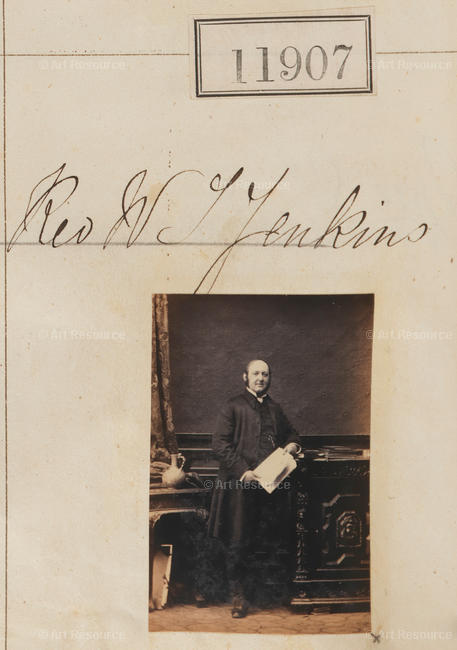 11907
© Art Resource © Art Resource
Rev W J Jenkins
© Art Resource © Art Resource
© Art Resource
© Art Resource © Art Resource